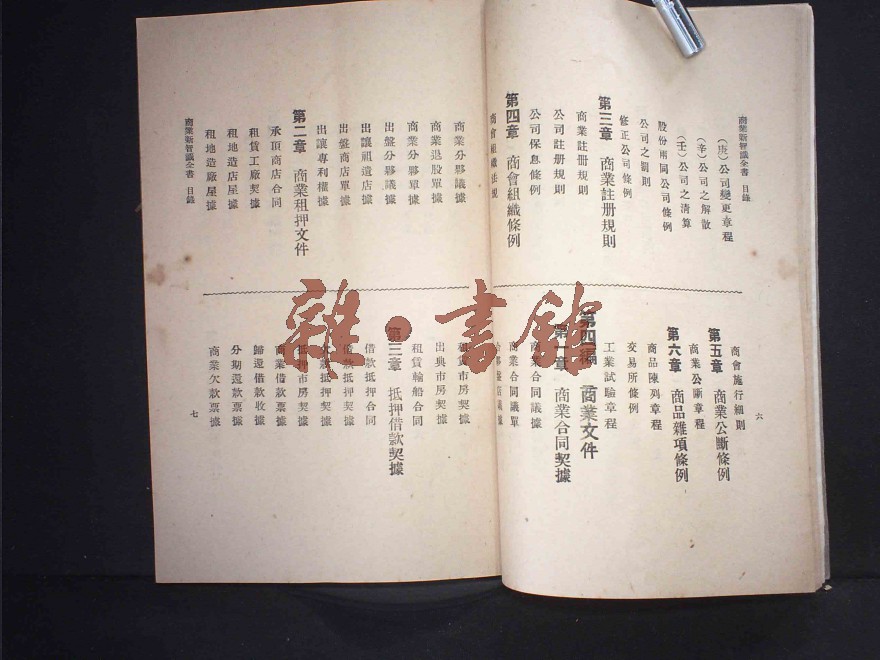 商業新智識全書 目錄
(庚)公司變更章程
(辛)公司之解散
(壬)公司之清算
股份兩同公司條例
公司之罰則
修正公司條例
第三章 商業註册規則
商業註册規則
公司註册規則
公司保息條例
第四章 商會組織條例
商會組織法規
商會施行細則
第五章 商業公斷條例
商業公斷章程
第六章 商品雜項條例
商品陳列章程
交易所條例
工業試驗章程
第四編 商業文件
第一章 商業合同契據
商業合同議據
商業合同議單
六
商業分夥議據
商業退股單據
商業分夥單據
出盤分夥議據
出讓祖遺店據
出盤商店單據
出讓專利權據
第二章 商業租押文件
承頂商店合同
租賃工廠契據
租地造店屋據
租地造廠屋據
商業新智識全書 目錄
租賃市房契據
出典市房契據
租賃輪船合同
第三章 抵押借款契據
借款抵押合同
借款抵押契據
抵押市房票據
商業借款票據
歸還借款收據
分期還款票據
商業欠款票據
七
雜·書館